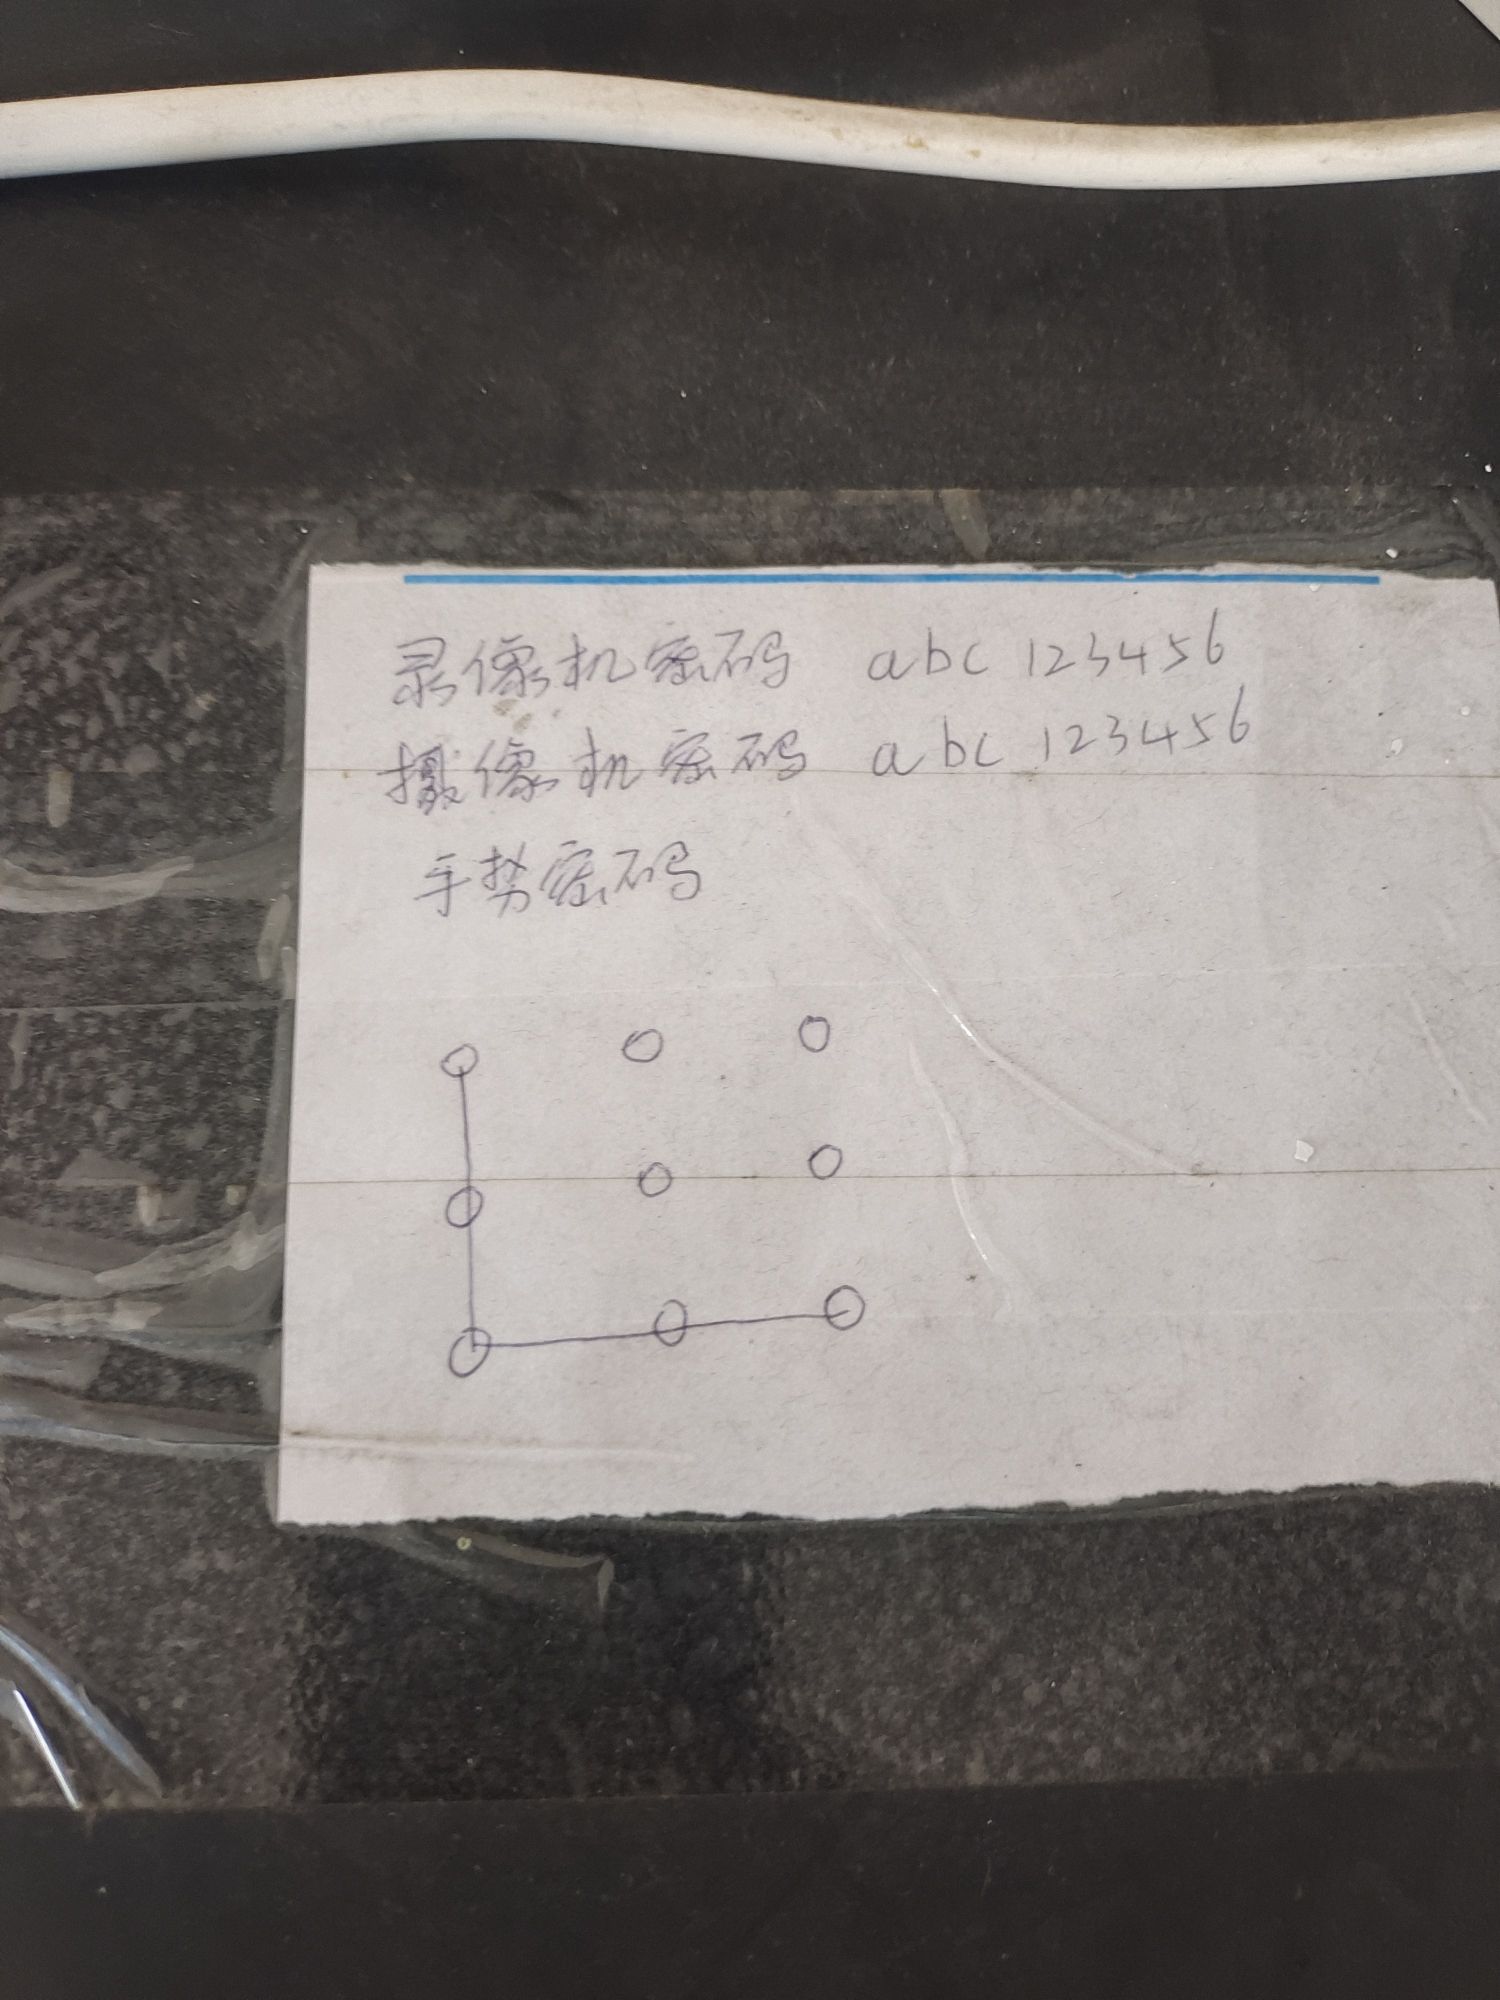 录像机密码 abc 123456
摄像机密码 abc 123456
手势密码